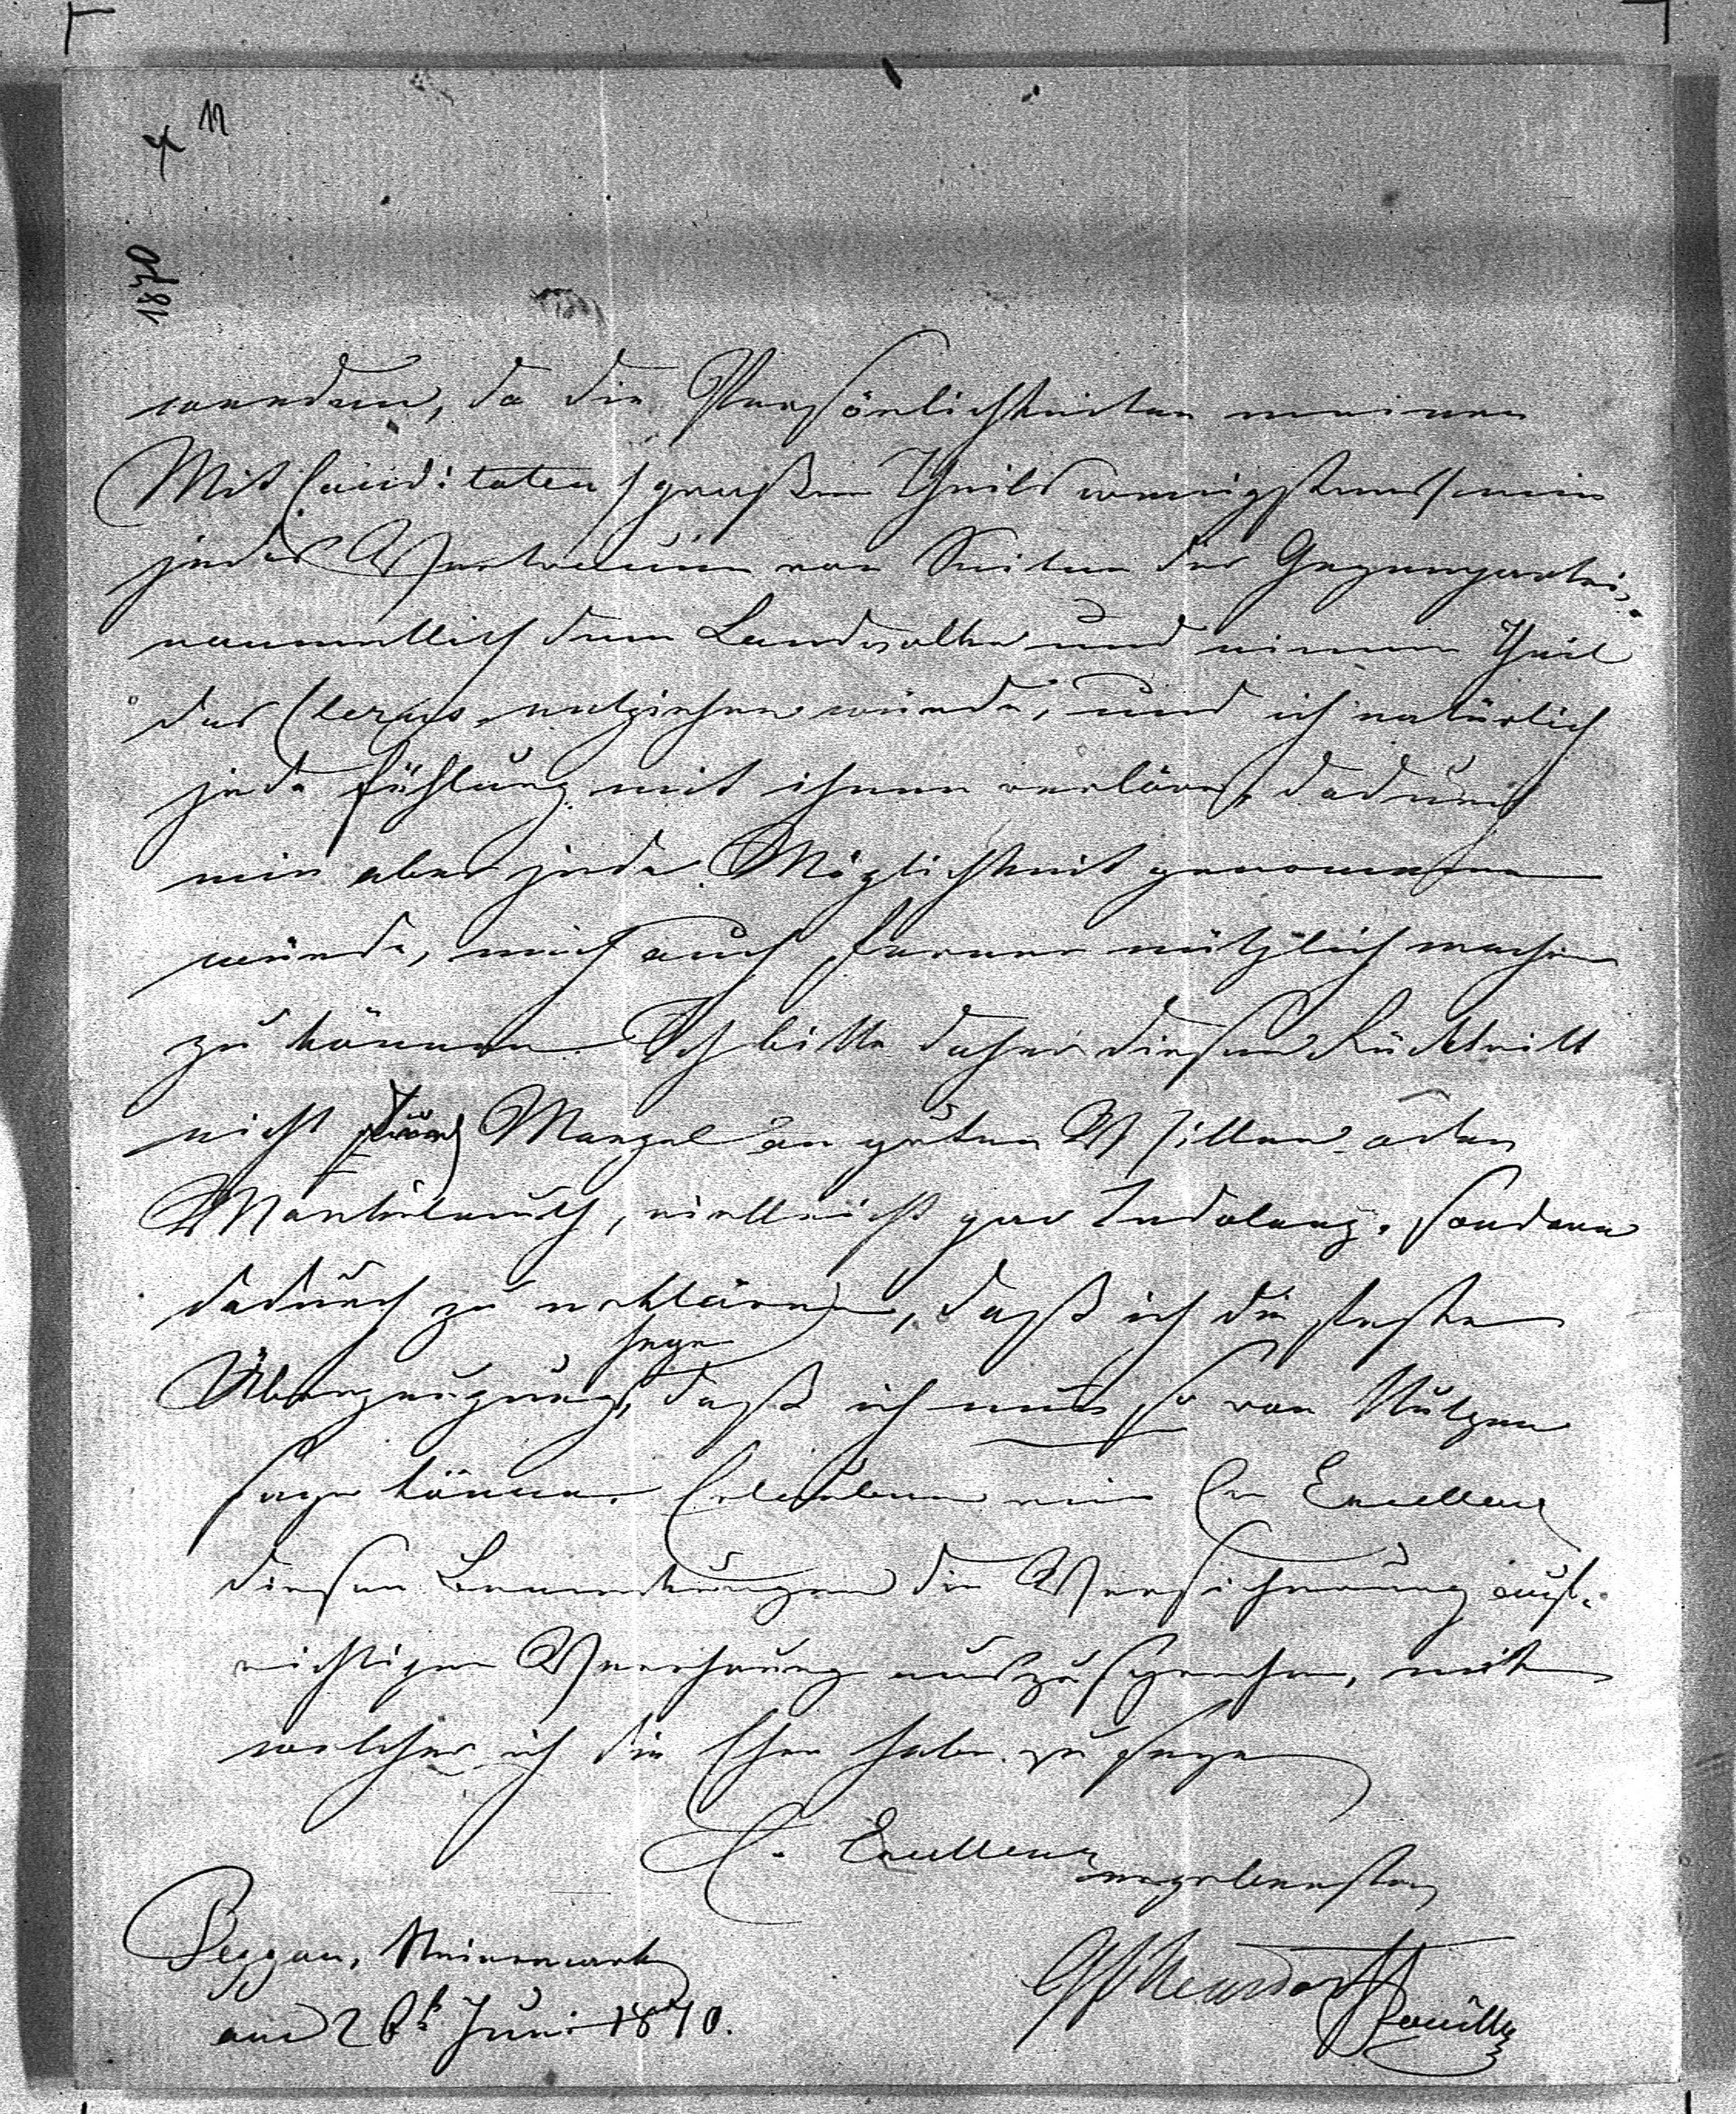 4 11
1870
werden, da die Persönlichkeiten meiner
Mit Canditaten /großen Theils wenigstens/ mir
jedes Vertrauen von Seiten der Gegenpartei,
namentlich dem Landvolke und einem Theil
des Clerus entziehen würde, und ich natürlich
jede Fühlung mit ihnen verlöre, dadurch
mir aber jede Möglichkeit genommen
würde, mich auch ferner nützlich machen
zu können. Ich bitte daher diesen Rücktritt
nicht durch Mangel an guten Willen oder
Wankelmuth, vielleicht gar Indolenz, sondern
dadurch zu erklären, daß ich die feste
hege
Überzeugung, daß ich nur so von Nutzen
sein könne. Erlauben mir Eu Excellenz
diesen Bemerkungen die Versicherung auf-
richtiger Verehrung auszusprechen, mit
welcher ich die Ehre habe zu sein
E. Excellenz
ergebenster
Peggau, Steiermark
am 26t Juni 1870.